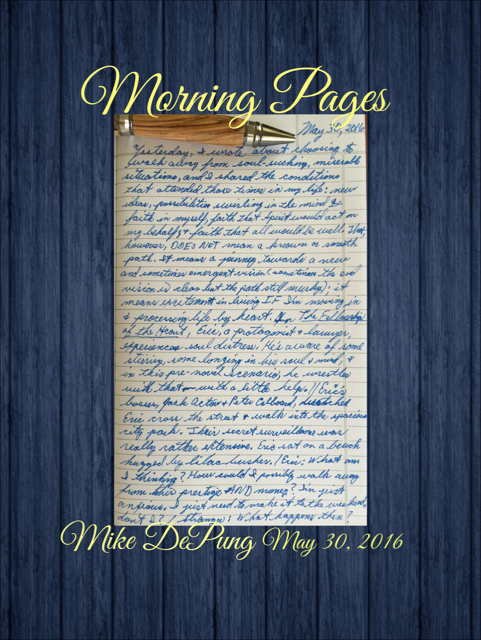 Morning Pages
May 30, 2016
Yesterday, I wrote about choosing to
walk away from soul-sucking, miserable
situations, and I shared the conditions
that attended those times in my life: new
ideas, possibilities swirling in the mind &
faith in myself, faith that Spirit would act on
my behalf, & faith that all would be well. That,
however, DOES NOT mean a known or smooth
path. It means a journey towards a new
and sometimes emergent vision (sometimes the end
vision is clear but the path still murky); it
means excitement in living IF I'm moving in
& processing life by heart. In The Fellowship
of the Heart, Eric, a protagonist & lawyer,
experiences soul distress. He's aware of some
stirring, some longing in his soul & mind, &
in this pre-novel scenario, he wrestles
with that with a little help. // Eric's
bosses, Jack Acton & Peter Calboard, watched
Eric cross the street & walk into the spacious
city park. Their secret surveillance was
really rather extensive. Eric sat on a bench
hugged by lilac bushes. / Eric: What am
I thinking? How could I possibly walk away
from this prestige AND money? I'm just
anxious. I just need to make it to the weekend,
don't I? / Stranger: What happens then?
Mike DePung May 30, 2016